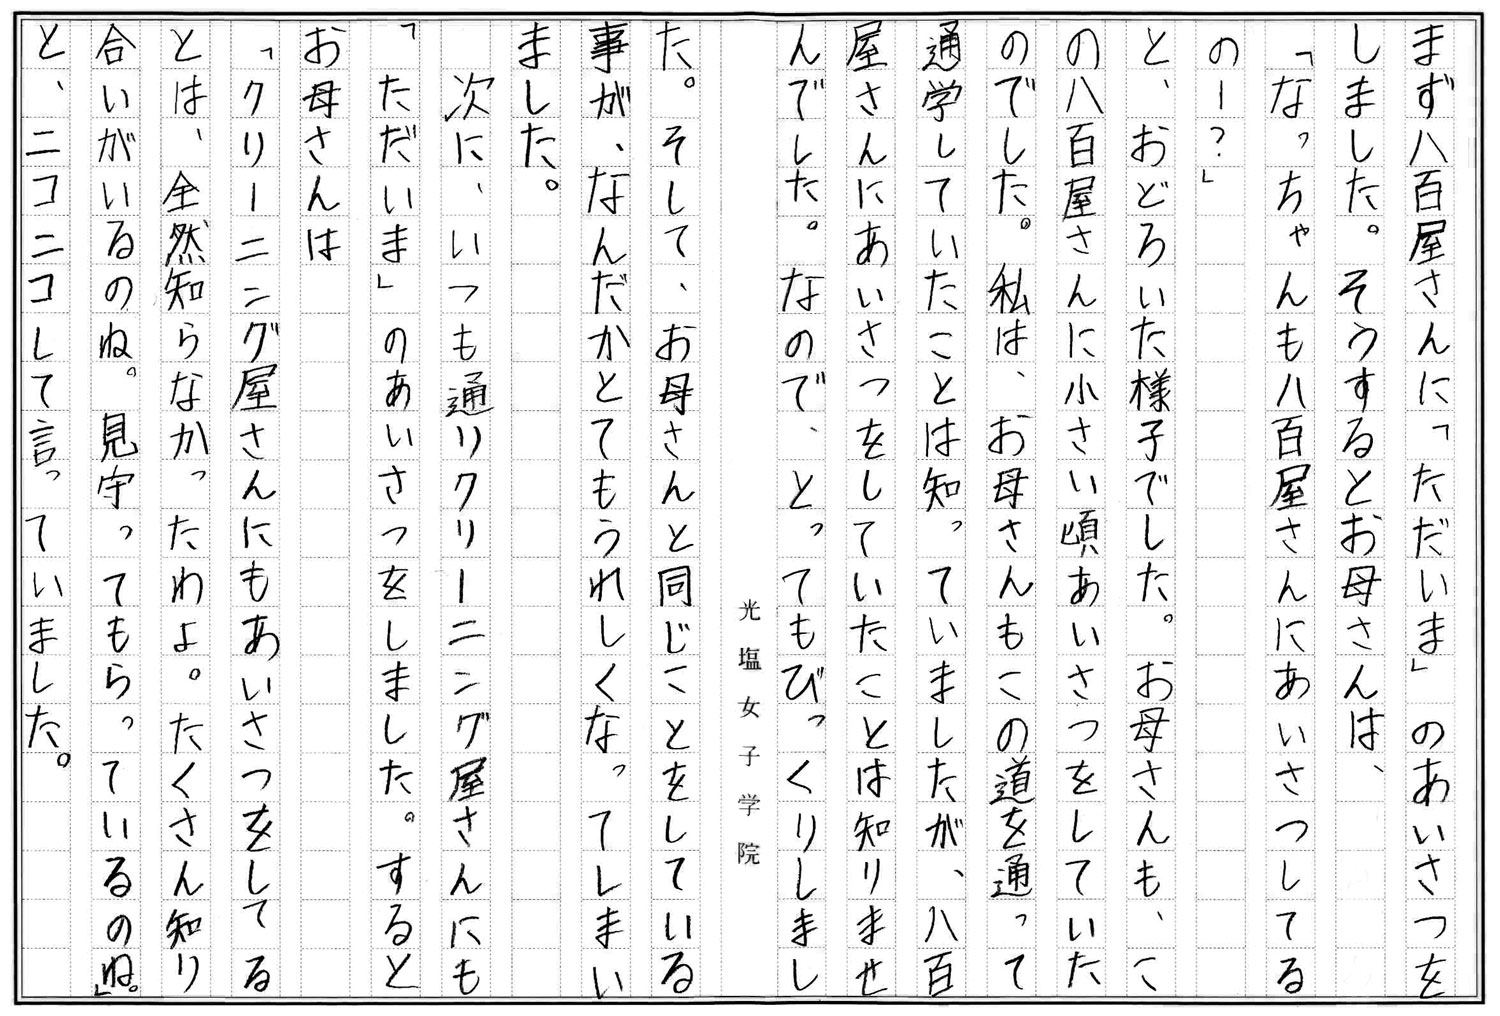 まず八百屋さんに「ただいま」のあいさつを
しました。そうするとお母さんは、
「なっちゃんも八百屋さんにあいさつしてる
のー？」
と、おどろいた様子でした。お母さんも、こ
の八百屋さんに小さい頃あいさつをしていた
のでした。私は、お母さんもこの道を通って
通学していたことは知っていましたが、八百
屋さんにあいさつをしていたことは知りませ
んでした。なので、とってもびっくりしまし
光塩女子学院
た。そして、お母さんと同じことをしている
事が、なんだかとてもうれしくなってしまい
ました。
次に、いつも通りクリーニング屋さんにも
「ただいま」のあいさつをしました。すると
お母さんは
「クリーニング屋さんにもあいさつをしてる
とは、全然知らなかったわよ。たくさん知り
合いがいるのね。見守ってもらっているのね。」
と、ニコニコして言っていました。